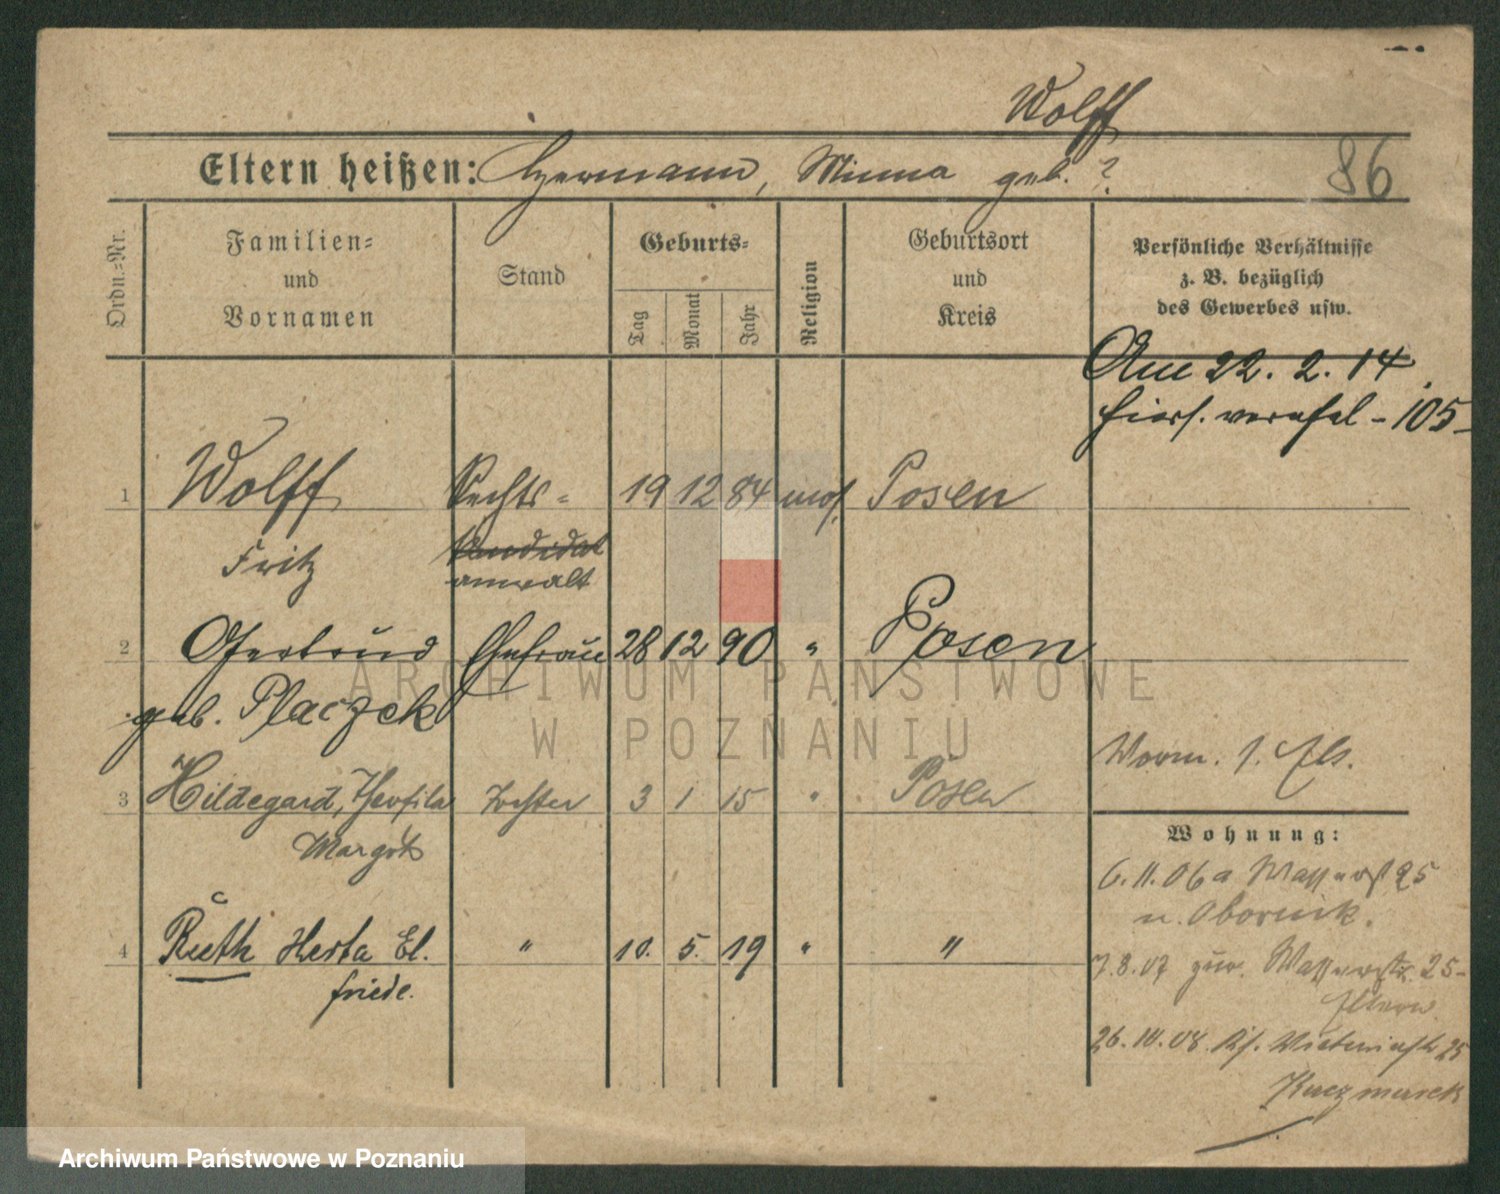 Wolff
Eltern heißen: Hermann, Minna geb. ?
86
Ordn.=Nr.
Familien=
und
Vornamen
Stand
Geburts=
Tag
Monat
Jahr
Religion
Geburtsort
und
Kreis
Persönliche Verhältnisse
z. B. bezüglich
des Gewerbes usw.
Am 22. 2. 14
hiers. verehel - 105-
1 Wolff Rechts= 19 12 84 mos. Posen
Fritz Kandidat
anwalt
2 Gertrud Ehefrau 28 12 90 " Posen
geb. Placzek
3 Hildegard, Theofila Tochter 3 1 15 " Posen
Margot
4 Ruth Herta El. " 10. 5. 19 " "
friede.
Worm. 1.
Wohnung:
6. 11. 06 a Wasserst 25
n. Obornik.
7. 8. 07 zur. Wasserstr. 25-
Eltern
26. 10. 08. 25
Kaczmarek
ARCHIWUM PAŃSTWOWE
W POZNANIU
Archiwum Państwowe w Poznaniu